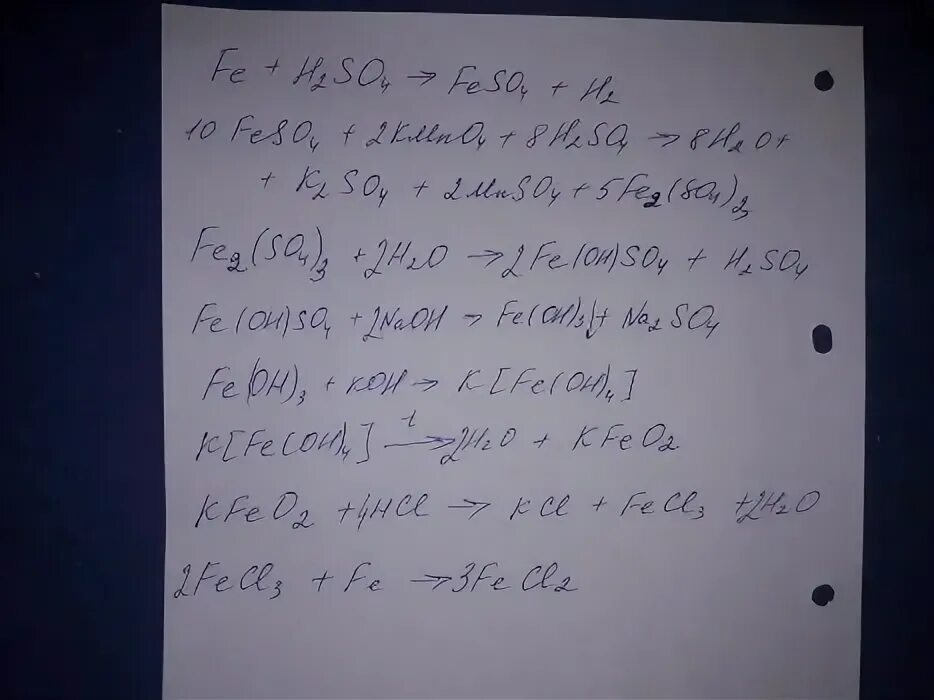 Fe + H₂SO₄ → FeSO₄ + H₂
10 FeSO₄ + 2KMnO₄ + 8H₂SO₄ → 8H₂O +
+ K₂SO₄ + 2MnSO₄ + 5Fe₂(SO₄)₃
Fe₂(SO₄)₃ + 2H₂O → 2Fe(OH)SO₄ + H₂SO₄
Fe(OH)SO₄ + 2NaOH → Fe(OH)₃↓ + Na₂SO₄
Fe(OH)₃ + KOH → K[Fe(OH)₄]
K[Fe(OH)₄] →t 2H₂O + KFeO₂
KFeO₂ + 4HCl → KCl + FeCl₃ + 2H₂O
2FeCl₃ + Fe → 3FeCl₂